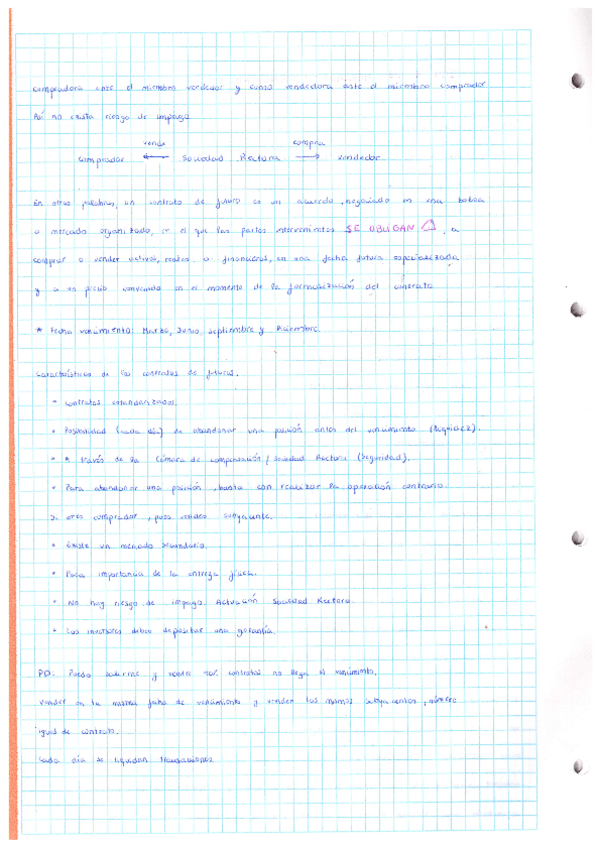 compradora ante el miembro vendedor y como vendedora ante el miembro comprador
Así no exista riesgo de impago
vende compra
Comprador ← Sociedad Rectora → vendedor
En otras palabras, un contrato de futuro es un acuerdo, negociado en una bolsa
o mercado organizado, en el que las partes intervinientes SE OBLIGAN, a
comprar o vender activos, reales o financieros, en una fecha futura especializada
y a un precio convenido en el momento de la formalización del contrato
* Fecha vencimiento: Marzo, Junio, Septiembre y Diciembre.
Características de los contratos de futuros.
• Contratos estandarizados.
• Posibilidad (cada día) de abandonar una posición antes del vencimiento (liquidez).
• A través de la Cámara de compensación / Sociedad Rectora (Seguridad).
• Para abandonar una posición, basta con realizar la operación contraria.
Si eres comprador, pues vendes subyacente.
• Existe un mercado secundario.
• Poca importancia de la entrega física.
• No hay riesgo de impago. Actuación Sociedad Rectora.
• Los inversores deben depositar una garantía.
PD: Puedo salirme y vendo contratos no llega al vencimiento.
Vender en la misma fecha de vencimiento y vender los mismos subyacentes, número
igual de contrato.
Cada día se liquidan